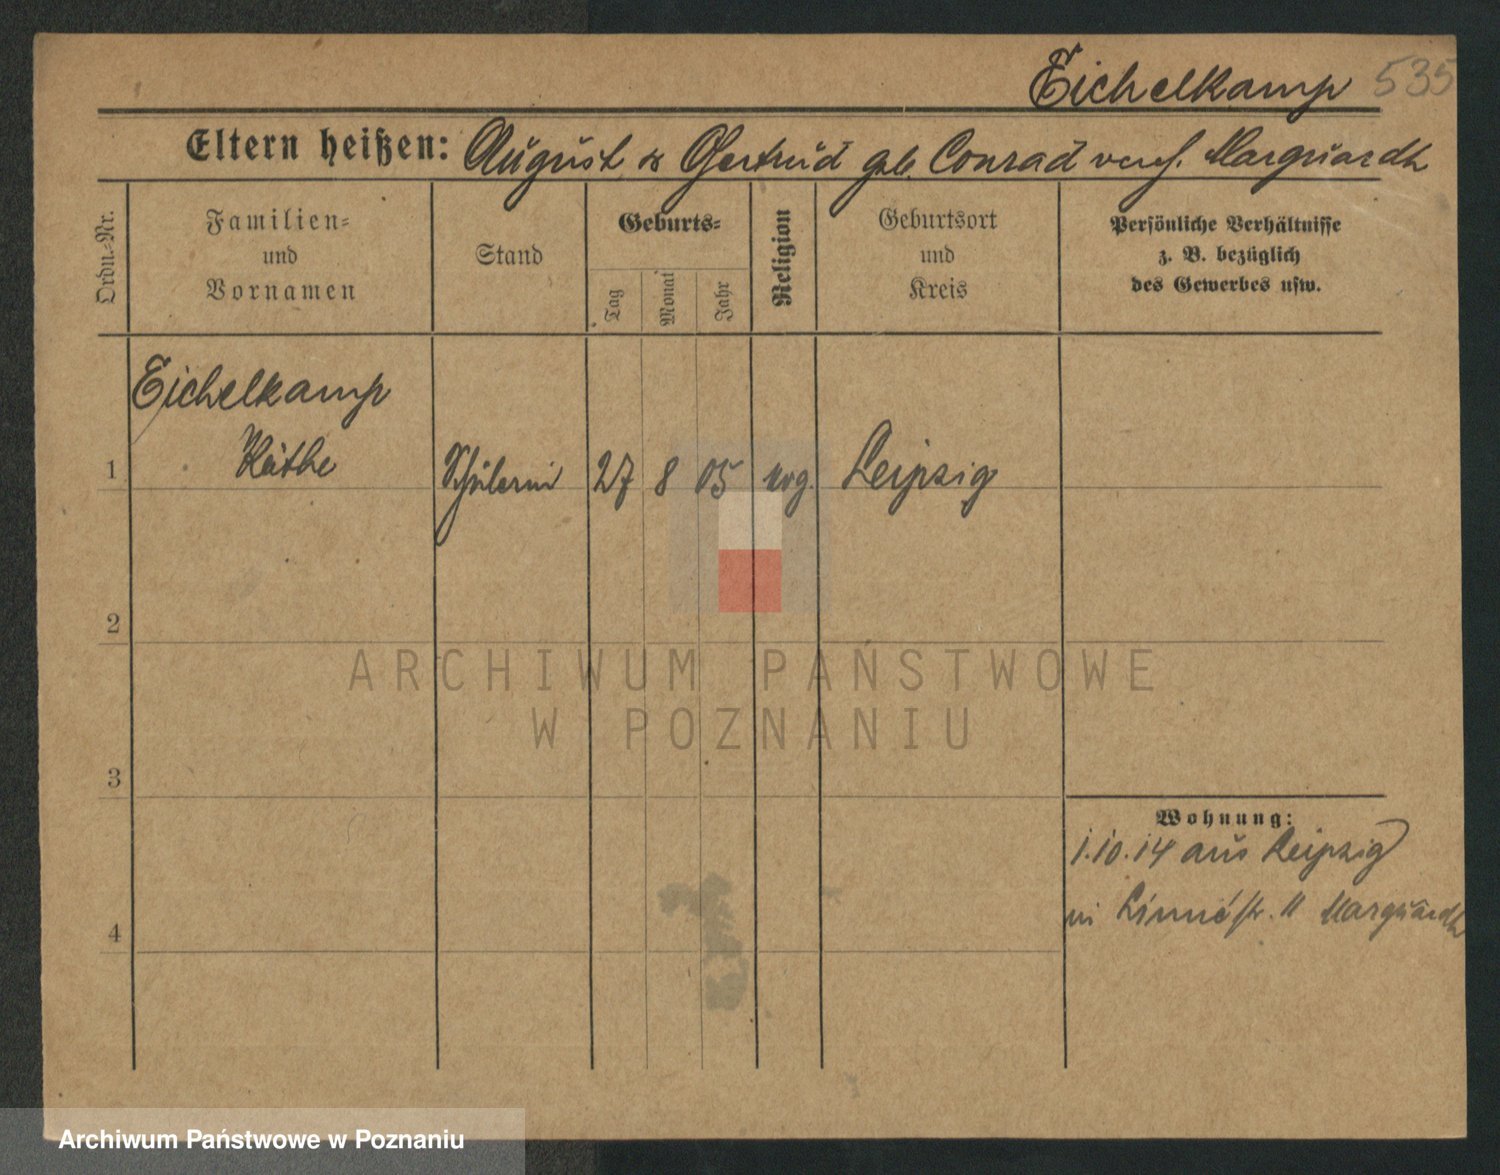 Eichelkamp 535
Eltern heißen: August & Gertrud geb. Conrad verh. Marquardt
Ordn.-Nr.
Familien-
und
Vornamen
Stand
Geburts-
Tag
Monat
Jahr
Religion
Geburtsort
und
Kreis
Persönliche Verhältnisse
z. B. bezüglich
des Gewerbes usw.
Eichelkamp
1 Käthe Schülerin 27 8 05 Leipzig
2
ARCHIWUM PAŃSTWOWE
W POZNANIU
3
Wohnung:
1.10.14 aus Leipzig
Linnéstr. 11 Marquardt
4
Archiwum Państwowe w Poznaniu